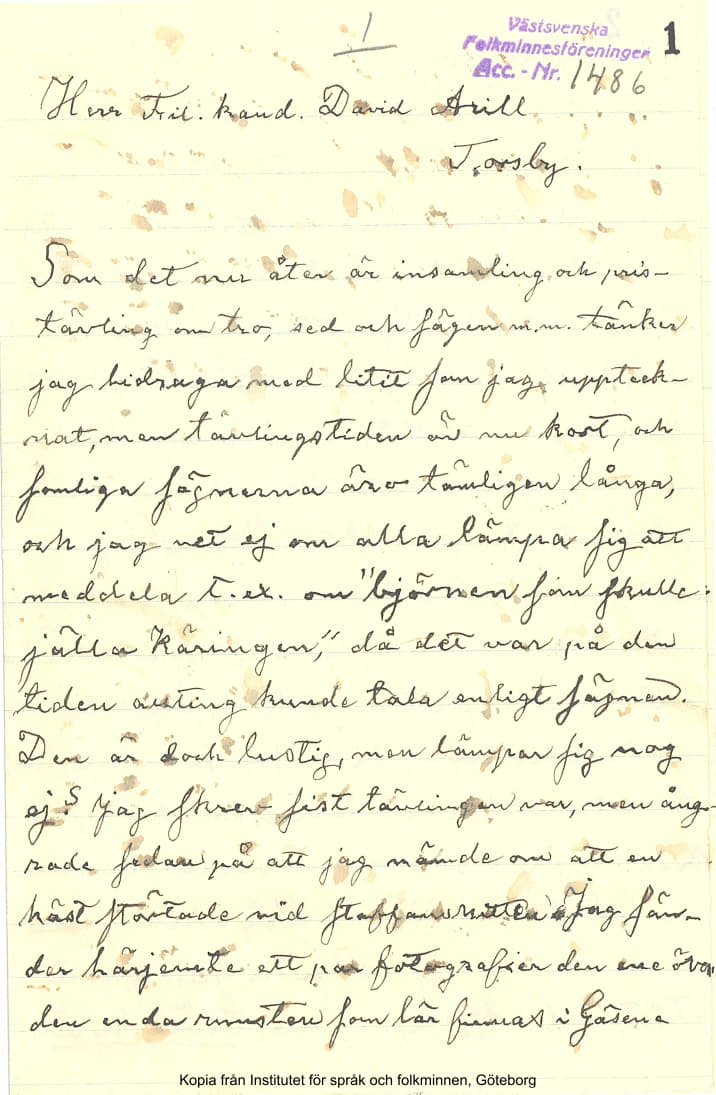 1
Västsvenska
Folkminnesföreningen
Acc. - Nr. 1486
1
Herr Fil. kand. David Arill
Torsby.
Som det nu åter är insamling och pris-
tävling om tro, sed och sägen m.m. tänker
jag bidraga med litit som jag uppteck-
nat, men tävlingstiden är nu kort, och
somliga sägnerna äro tämligen långa,
och jag vet ej om alla lämpa sig att
meddela t.ex. om "björnen som skulle
jälla Käringen," då det var på den
tiden allting kunde tala enligt sägnen.
Den är dock lustig, men lämpar sig nog
ej? Jag skrev sist tävlingen var, men ång-
rade sedan på att jag nämde om att en
häst störtade vid staffansritten. Jag sän-
der härjemte ett par fotografier den ene över
den enda runsten som lär finnas i Gäsene
Kopia från Institutet för språk och folkminnen, Göteborg